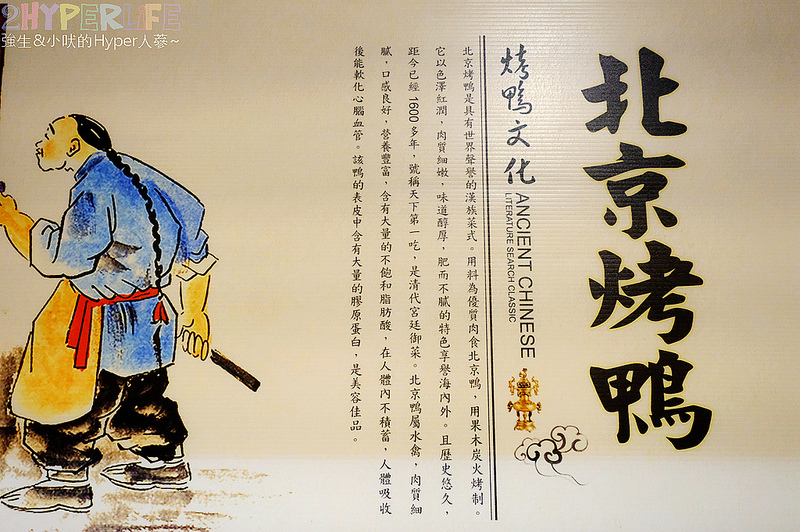 2HYPERLIFE
強生&小吠的Hyper人蔘~
北京烤鴨
烤鴨文化
ANCIENT CHINESE
LITERATURE SEARCH CLASSIC
北京烤鴨是具有世界聲譽的漢族菜式。用料為優質肉食北京鴨,用果木炭火烤制。
它以色澤紅潤,肉質細嫩,味道醇厚,肥而不膩的特色享譽海內外。且歷史悠久,
距今已經1600多年,號稱天下第一吃,是清代宮廷御菜。北京鴨屬水禽,肉質細
膩,口感良好,營養豐富,含有大量的不飽和脂肪酸,在人體內不積蓄,人體吸收
後能軟化心腦血管。該鴨的表皮中含有大量的膠原蛋白,是美容佳品。